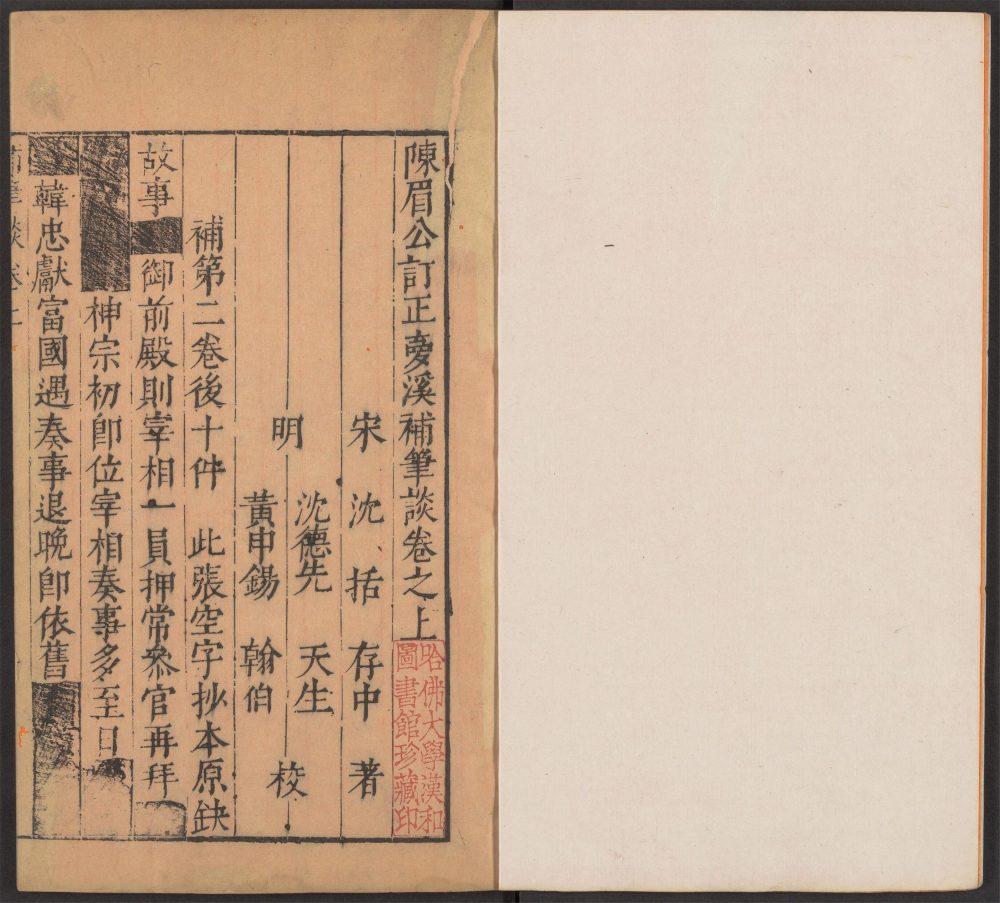 陳眉公訂正夣溪補筆談卷之上
哈佛大學漢和
圖書館珍藏印
宋　沈　括　存中　著
沈德先　天生
明　校
黃申錫　翰伯
補第二卷後十件　此張空字抄本原缺
故事　御前殿則宰相一員押常叅官再拜
神宗初卽位宰相奏事多至日
韓忠獻富國遇奏事退晩卽依舊
補筆談卷上